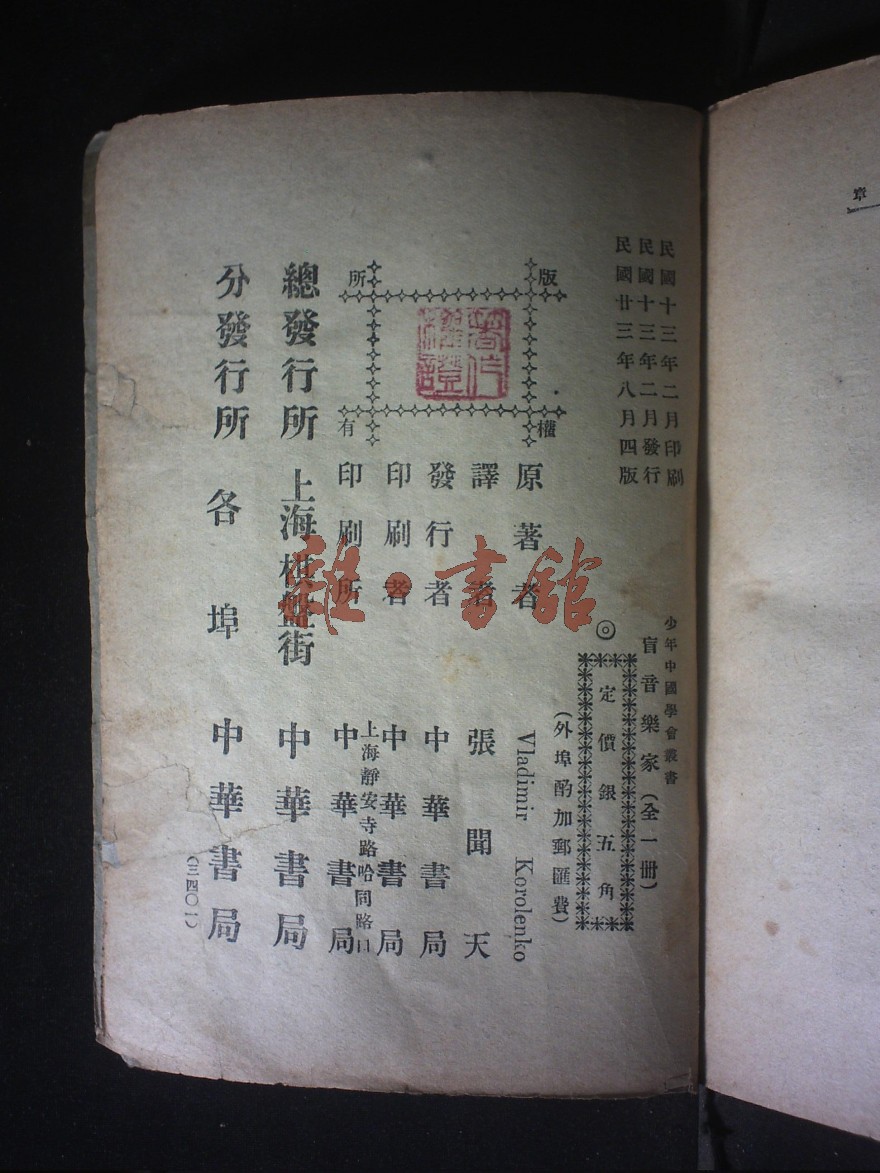 民國十三年二月印刷
民國十三年二月發行
民國廿三年八月四版
少年中國學會叢書
盲音樂家(全一冊)
◎
定價銀五角
(外埠酌加郵匯費)
版權所有
著作權證
原著者 Vladimir Korolenko
譯者 張聞天
發行者 中華書局
印刷者 中華書局
上海靜安寺路哈同路口
印刷所 中華書局
總發行所 上海棋盤街 中華書局
分發行所 各埠 中華書局
(三四〇一)
雜·書館
章